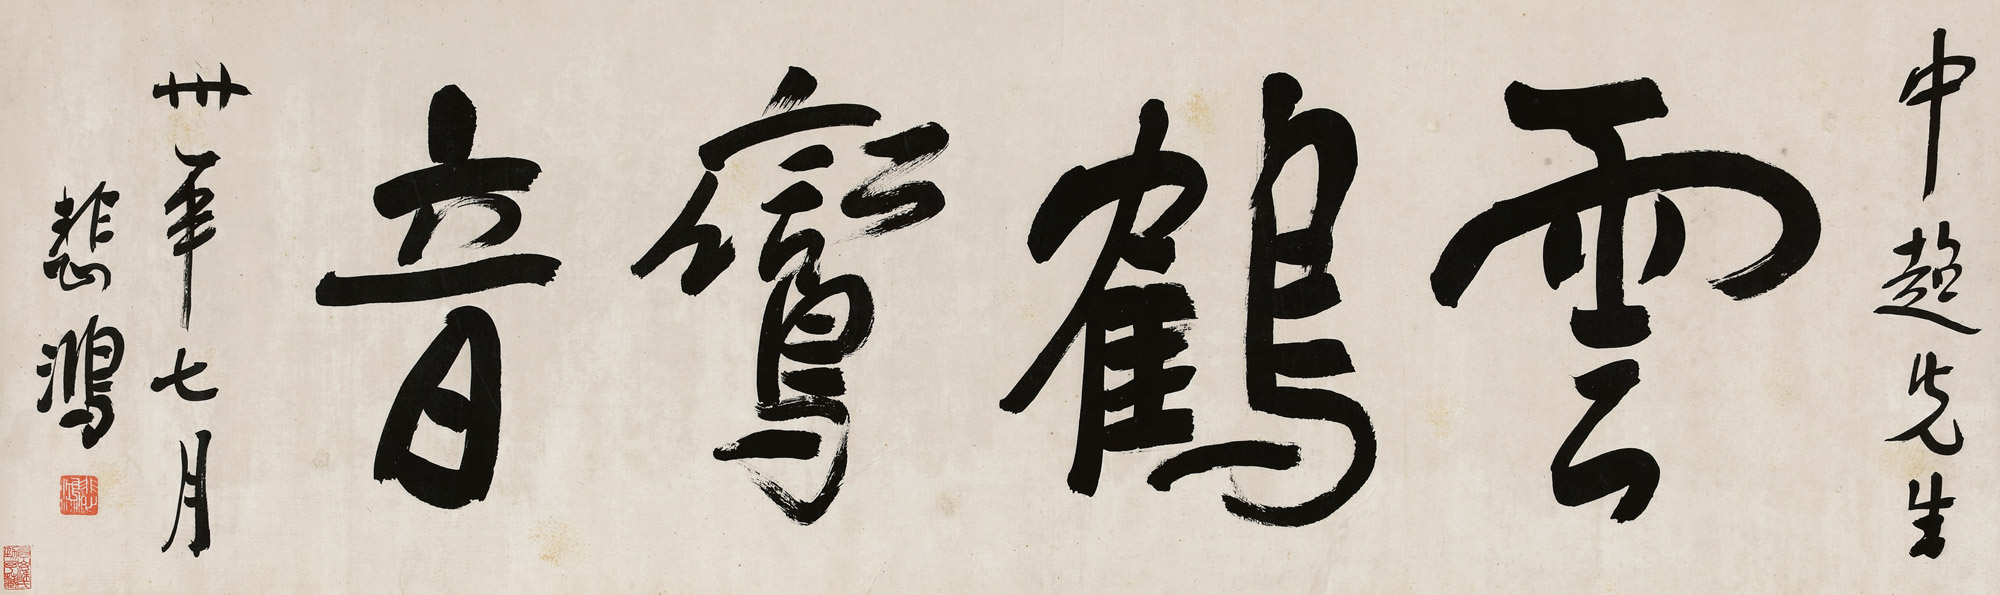 中超先生
雲鶴鸞音
卅年七月
悲鴻
悲鴻